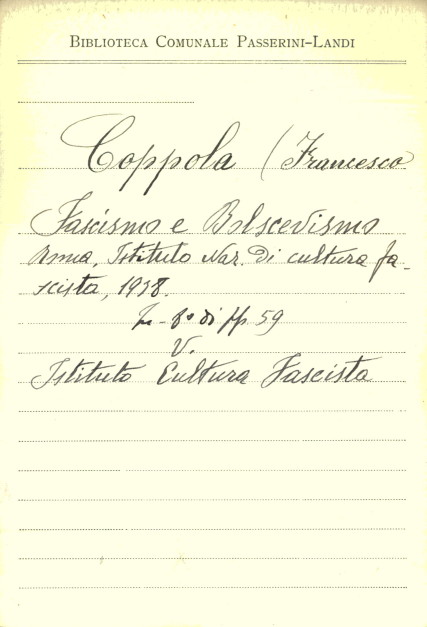 BIBLIOTECA COMUNALE PASSERINI-LANDI
Coppola (Francesco
Fascismo e Bolscevismo
Roma, Istituto Naz. di cultura fa-
scista, 1938.
In-8° di pp. 59
V.
Istituto Cultura Fascista